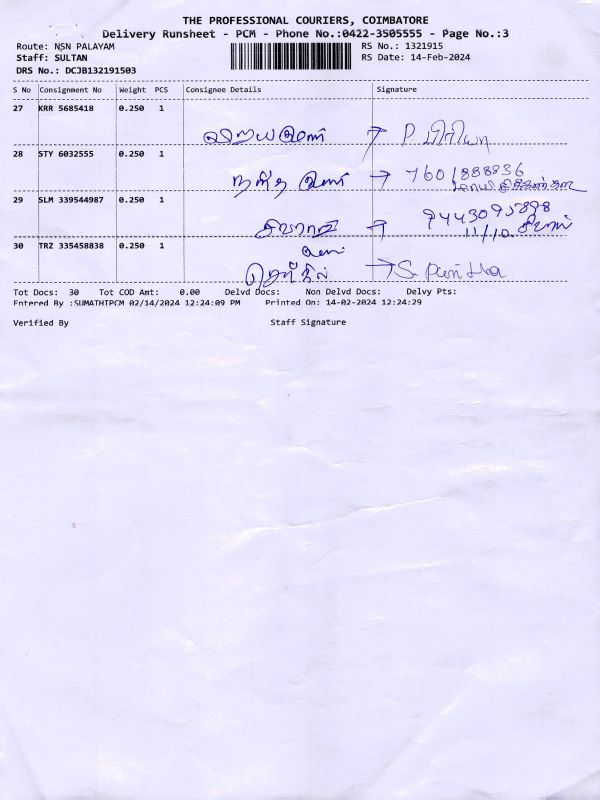 THE PROFESSIONAL COURIERS, COIMBATORE
Delivery Runsheet - PCM - Phone No.:0422-3505555 - Page No.:3
Route: NSN PALAYAM RS No.: 1321915
Staff: SULTAN RS Date: 14-Feb-2024
DRS No.: DCJB132191503
S No Consignment No Weight PCS Consignee Details Signature
27 KRR 5685418 0.250 1
28 STY 6032555 0.250 1
7601888836
29 SLM 339544987 0.250 1
9443095898
11/10.
30 TRZ 335458838 0.250 1
Tot Docs: 30 Tot COD Amt: 0.00 Delvd Docs: Non Delvd Docs: Delvy Pts:
Entered By :SUMATHIPCM 02/14/2024 12:24:09 PM Printed On: 14-02-2024 12:24:29
Verified By Staff Signature